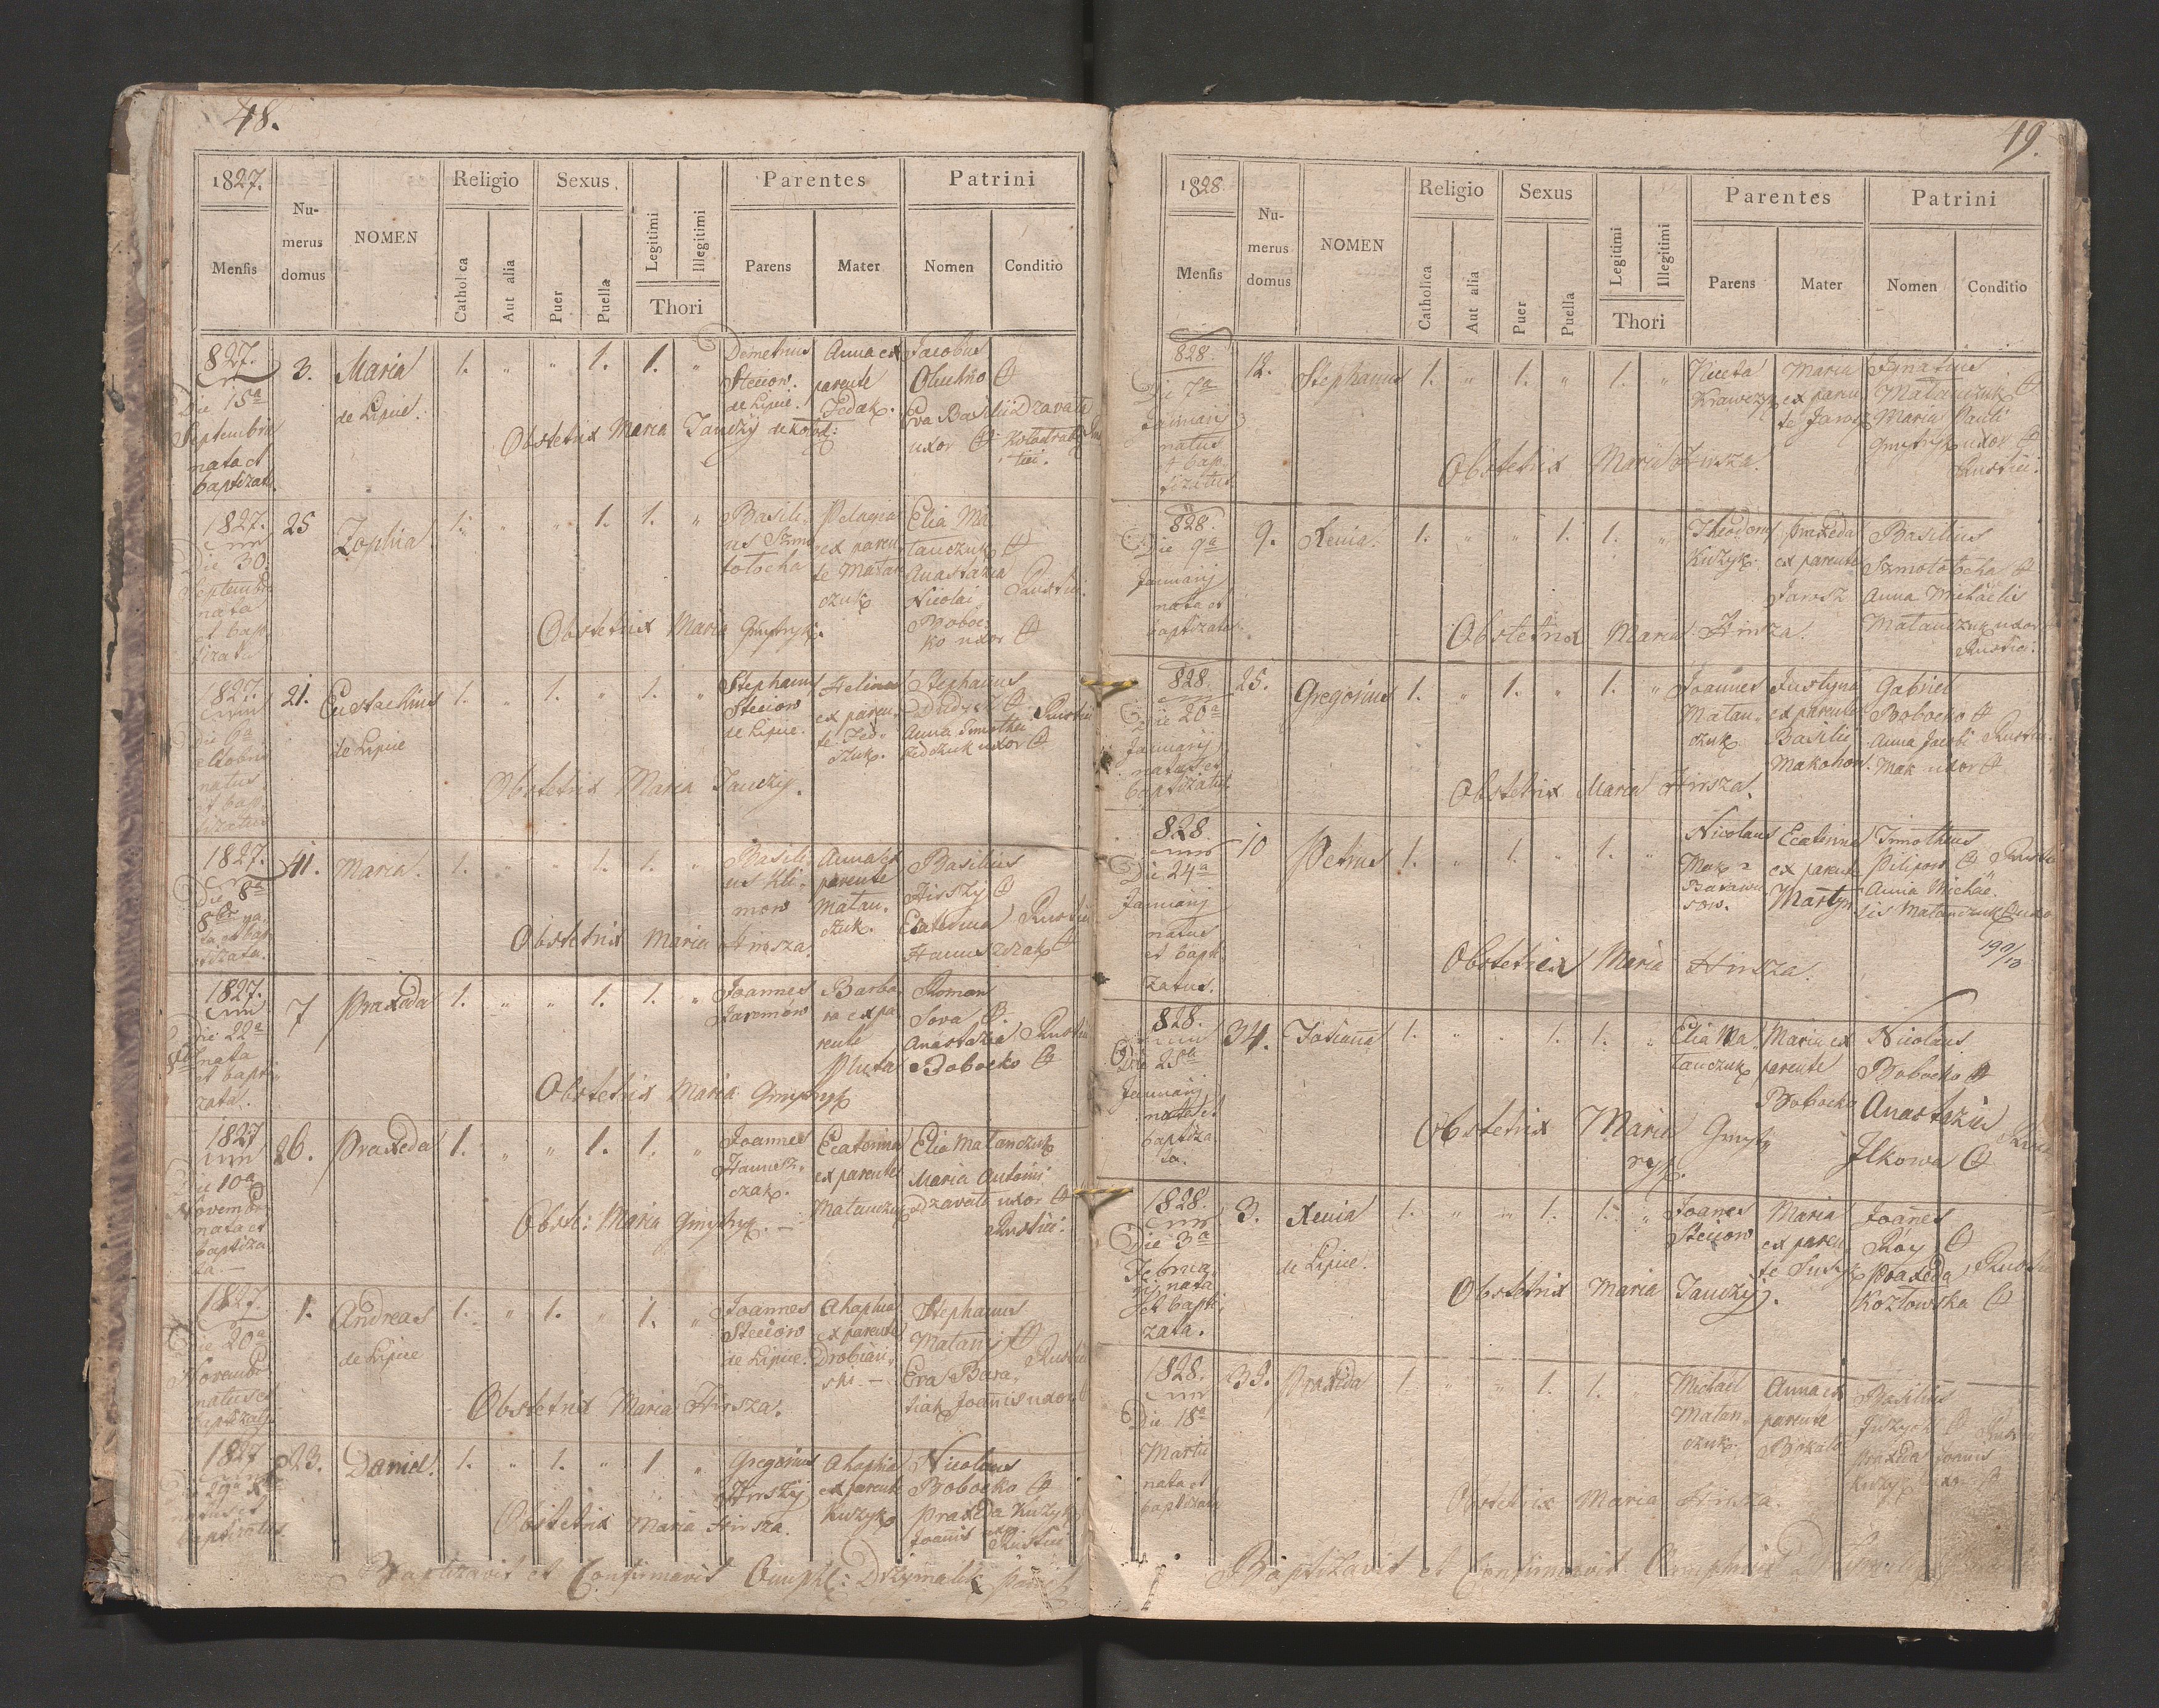 48.
1827.
Numerus domus
NOMEN
Religio
Sexus
Legitimi
Illegitimi
Thori
Parentes
Patrini
Mensis
Catholica
Aut alia
Puer
Puella
Parens
Mater
Nomen
Conditio
827.
Die 15a
Septembris
nata et
baptizata.
3.
Maria
de Lipiie.
1. " " 1. 1. "
Demetrius
Steciow.
de Lipiie.
Anna ex
parente
Fedak.
Jacobus
Eva Basilii Dzavala
uxor
Obstetrix Maria Janczÿ
1827.
Die 30.
Septemb
nata
et bap
tizata
25
Zophia
1. " " 1. 1. "
Basili
us Szmo
lotocha
Pelagia
ex paren
te Matan
czuk
Elia Ma
tanczuk
Anastazia
Nicolai
Boboc
ko uxor
Rustici.
Obstetrix Maria Gmytryk.
1827.
Die 6a
natus
et bap
tizatus
21.
Eustachius
de Lipiie
1. " 1. " 1. "
Stephanus
Steciow
de Lipiie.
Helena
ex paren
te Fed
czuk.
Stephanus
Anna Timothei
Fedczuk uxor
Rustici
Obstetrix Maria Janczÿ.
1827.
Die 8a
8bris na
ta et bap
tizata.
41.
Maria.
1. " " 1. 1. "
Basili
us Kli
mow
Anna ex
parente
Matan
czuk.
Basilius
Hirszÿ
Ecaterina
Hanuszczak
Rustici
Obstetrix Maria Hirsza.
1827.
Die 22a
8bris nata
et bapti
zata.
7
Praxeda
1. " " 1. 1. "
Joannes
Jaremów
Barba
ra ex pa
rente
Pluta
Roman
Sova
Anastazia
Bobocko
Rustici
Obstetrix Maria Gmytryk
1827
Die 10a
Novemb
nata et
baptiza
ta.
26.
Praxeda
1. " " 1. 1. "
Joannes
Hanusz
czak.
Ecaterina
ex parente
Matanczuk
Elia Matanczuk
Maria Antonii
Dzavala uxor
Rustici.
Obste: Maria Gmytryk.
1827.
Die 20a
Novemb
natus et
baptizatus
1.
Andreas
de Lipiie
1. " 1. " 1. "
Joannes
Steciów
de Lipiie.
Ahaphia
ex parente
Drobiań
ski.
Stephanus
Matanij
Eva Bara
Joannis uxor
Rustici
Obstetrix Maria Hirsza.
1827
natus et
baptizatus
23.
Daniel.
1. " 1. " 1 "
Gregorius
Hirszÿ
Ahaphia
ex parente
Kuzyk
Nicolaus
Bobocko
Praxeda Kuzyk
Joannis uxor
Rustici
Obstetrix Maria Hirsza.
Baptizavit et Confirmavit Onuph: Drzymalik
49.
1828.
Numerus domus
NOMEN
Religio
Sexus
Legitimi
Illegitimi
Thori
Parentes
Patrini
Mensis
Catholica
Aut alia
Puer
Puella
Parens
Mater
Nomen
Conditio
828.
Die 7a
Januarij
natus
et bap
tizatus
12.
Stephanus
1. " 1. " 1. "
Niceta
Krawczyk
Maria
ex paren
te Jarosz
Ignatius
Matanczuk
Maria Pauli
Gmytryk uxor
Rustici.
Obstetrix Maria Hirsza.
828.
Die 9a
Januarij
nata et
baptizata
9.
Xenia.
1. " " 1. 1. "
Theodorus
Kuzyk.
Praxeda
ex parente
Jarosz
Basilius
Szmolotocha
Anna Michaelis
Matanczuk uxor
Rustici.
Obstetrix Maria Hirsza.
828.
Die 20a
Januarij
natus et
baptizatus
25.
Gregorius
1. " 1. " 1. "
Joannes
Matan
czuk
Justyna
ex parente
Basilii
Makohon.
Gabriel
Bobocko
Anna Jacobi
Mak uxor
Rustici
Obstetrix Maria Hirsza.
828.
Die 24a
Januarij
natus
et bapti
zatus.
10
Petrus
1. " 1. " 1. "
Nicolaus
Ecaterina
ex parente
Martyn
Timotheus
Pilipow
Anna Michae
lis Matanczuk uxor
Obstetrix Maria Hirsza.
828.
Die 25ta
Januarij
nata et
baptiza
ta.
34.
Tatianna
1. " " 1. 1. "
Elia Ma
tanczuk
Maria ex
parente
Bobocko
Nicolaus
Bobocko
Anastazia
Ilkowa
Obstetrix Maria Gmyt
ryk.
1828.
Die 3a
Februa
rij nata
et bapti
zata.
3.
Xenia
de Lipiie.
1. " " 1. 1. "
Joanes
Steciow
Maria
ex paren
te
Joannes
Róy
Praxeda
Kozlowska
Rustici
Obstetrix Maria Janczÿ.
1828.
Die 18a
Martii
nata et
baptizata
Praxeda
1. " " 1. 1. "
Michael
Matan
czuk.
Anna ex
parente
Basilius
Praxeda Joannis
Kuzyk uxor
Obstetrix Maria Hirsza.
Baptizavit et Confirmavit